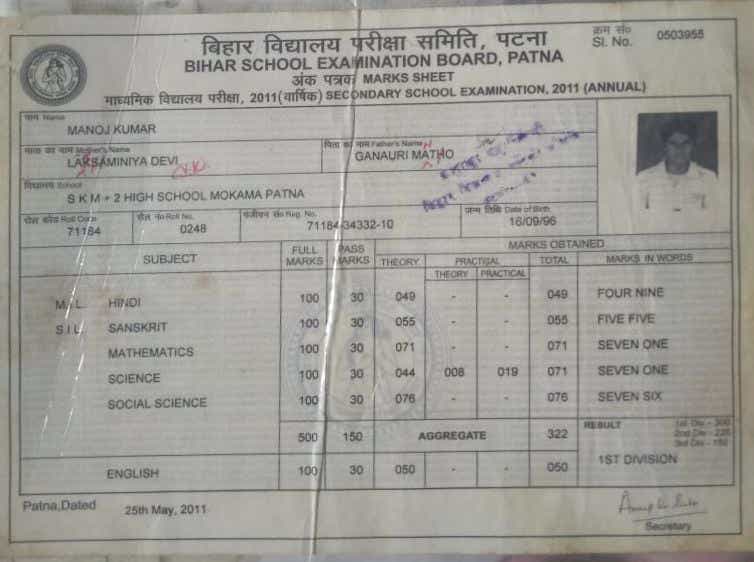 क्रम सं०
Sl. No. 0503955
बिहार विद्यालय परीक्षा समिति, पटना
BIHAR SCHOOL EXAMINATION BOARD, PATNA
अंक पत्रक MARKS SHEET
माध्यमिक विद्यालय परीक्षा, 2011(वार्षिक) SECONDARY SCHOOL EXAMINATION, 2011 (ANNUAL)
नाम Name
MANOJ KUMAR
माता का नाम Mother's Name पिता का नाम Father's Name
LAKSAMINIYA DEVI GANAURI MATHO
विद्यालय School
S K M + 2 HIGH SCHOOL MOKAMA PATNA
रोल कोड Roll Code रोल नं० Roll No. पंजीयन सं० Reg. No. जन्म तिथि Date of Birth
71184 0248 71184-34332-10 16/09/96
SUBJECT FULL MARKS PASS MARKS MARKS OBTAINED
THEORY PRACTICAL TOTAL MARKS IN WORDS
THEORY PRACTICAL
M.I.L. HINDI 100 30 049 - - 049 FOUR NINE
S.I.L. SANSKRIT 100 30 055 - - 055 FIVE FIVE
MATHEMATICS 100 30 071 - - 071 SEVEN ONE
SCIENCE 100 30 044 008 019 071 SEVEN ONE
SOCIAL SCIENCE 100 30 076 - - 076 SEVEN SIX
500 150 AGGREGATE 322 RESULT 1st Div - 300
2nd Div - 225
3rd Div - 150
1ST DIVISION
ENGLISH 100 30 050 - - 050
Patna,Dated 25th May, 2011
Secretary